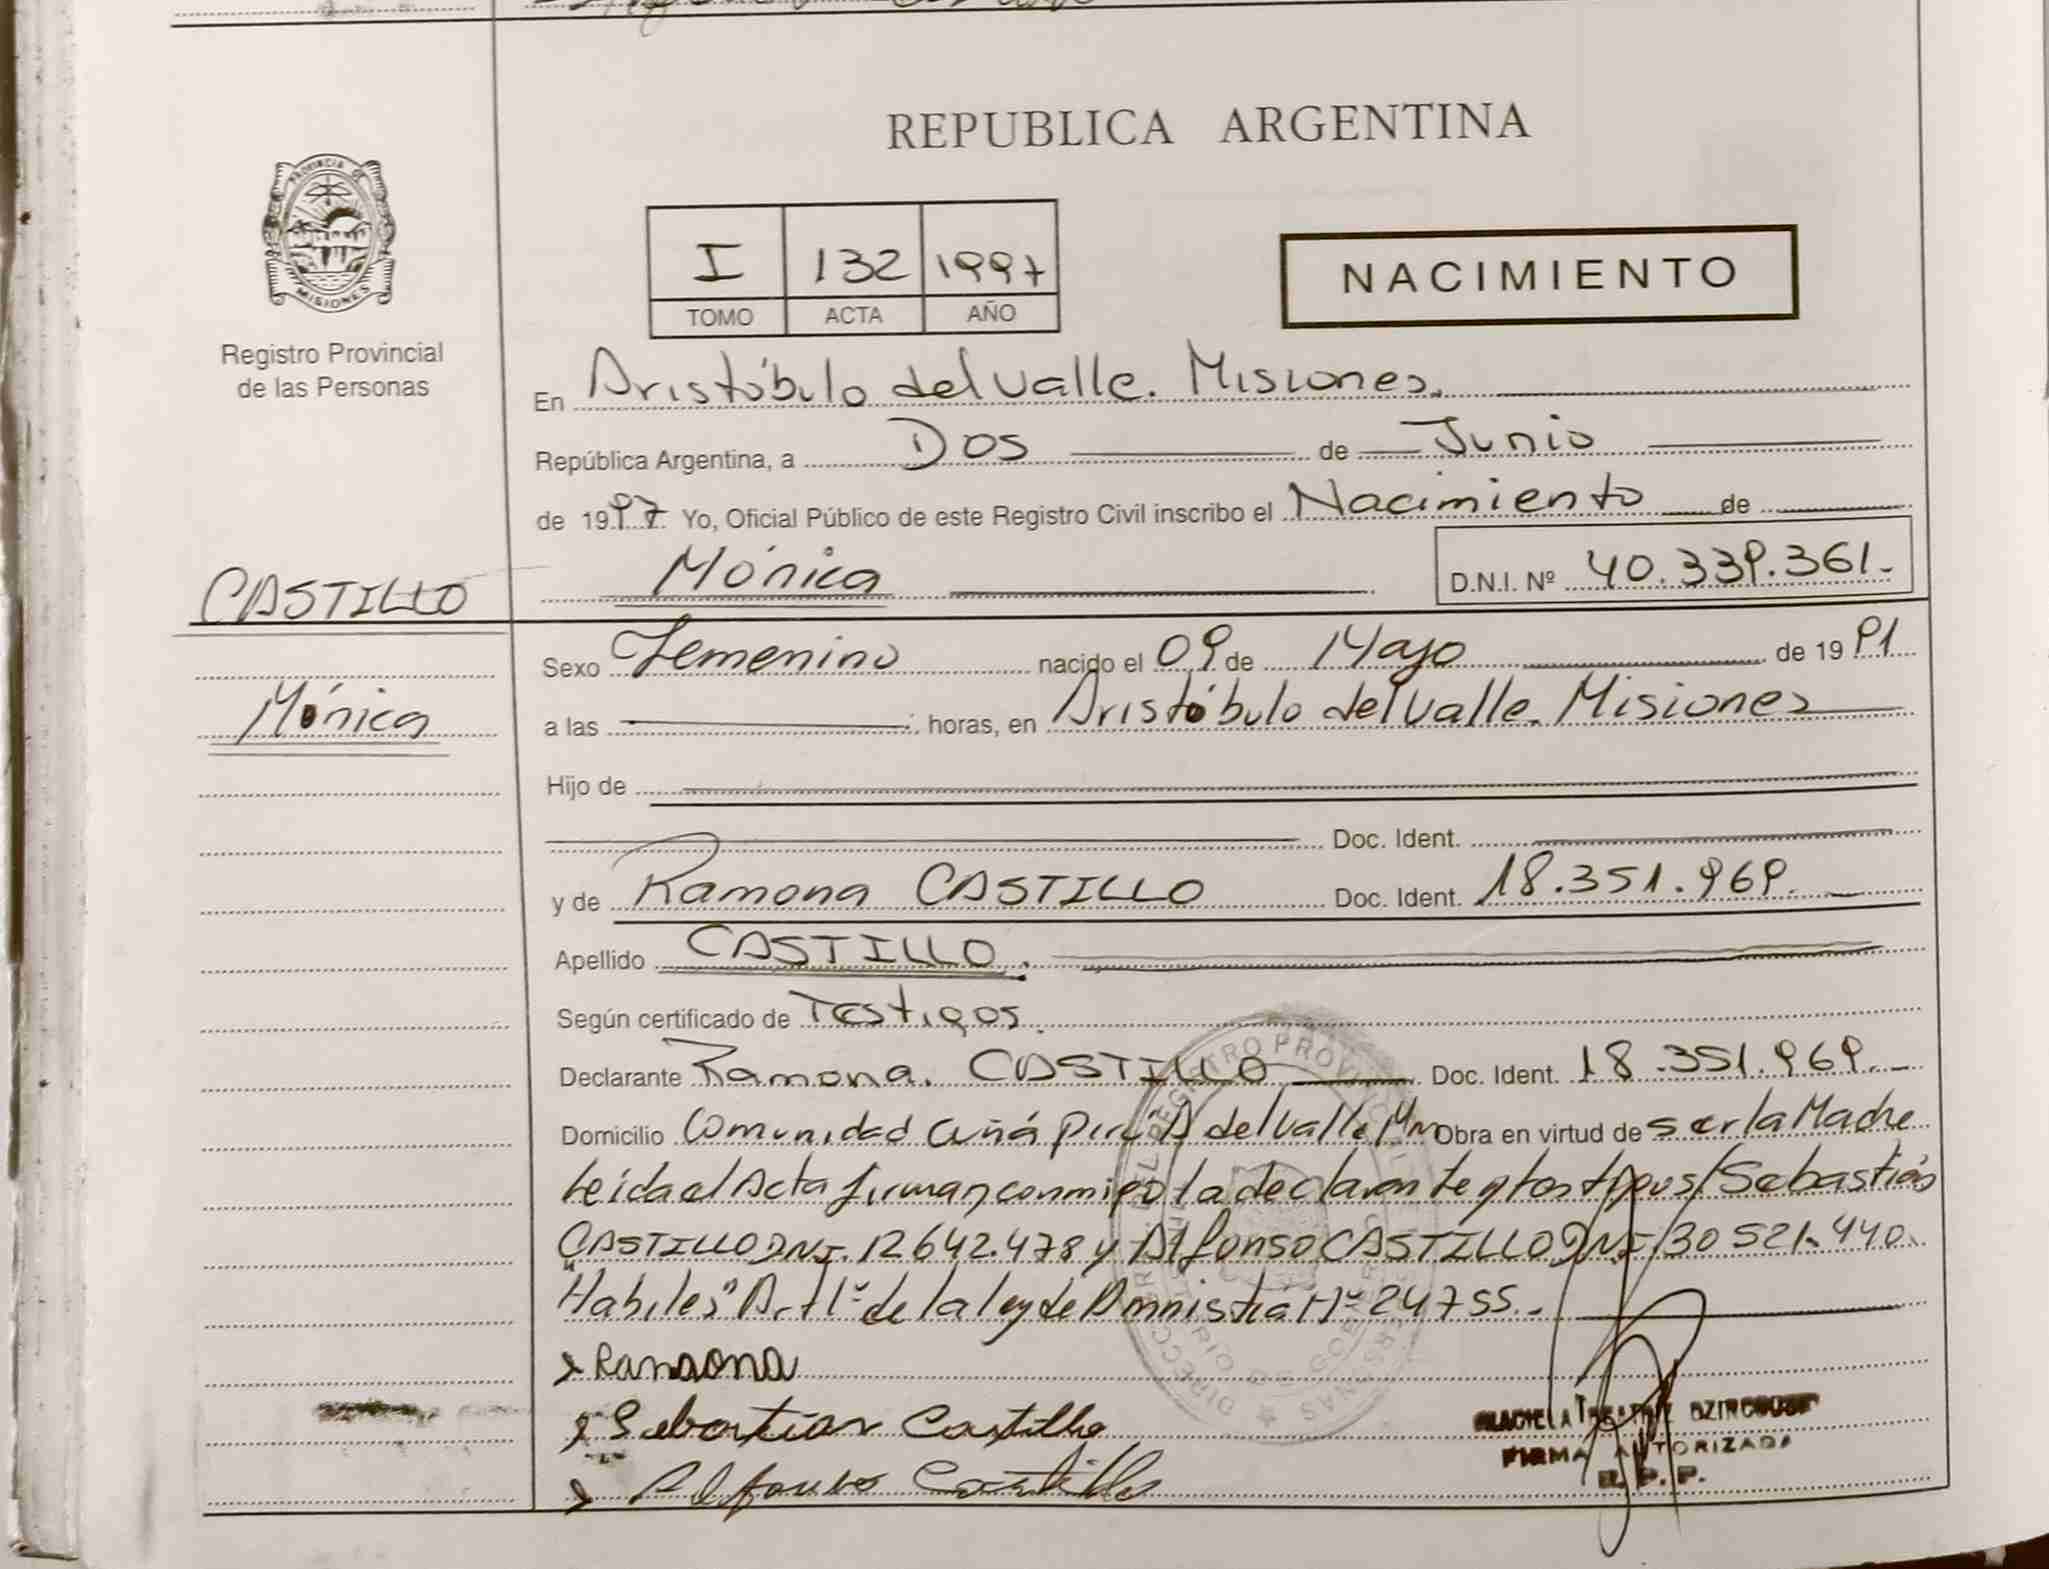 REPUBLICA ARGENTINA
PROVINCIA DE
MISIONES
Registro Provincial
de las Personas
I 132 1997
TOMO ACTA AÑO
NACIMIENTO
En Aristóbulo del Valle. Misiones.
República Argentina, a Dos de Junio
de 1997 Yo, Oficial Público de este Registro Civil inscribo el Nacimiento de
Mónica D.N.I. Nº 40.339.361.-
CASTILLO
Mónica
Sexo Femenino nacido el 09 de Mayo de 1991
a las horas, en Aristóbulo del Valle. Misiones
Hijo de
Doc. Ident.
y de Ramona CASTILLO Doc. Ident. 18.351.969.-
Apellido CASTILLO.
Según certificado de Testigos.
Declarante Ramona. CASTILLO Doc. Ident. 18.351.969.-
Domicilio Comunidad Cuñá Pirú A del Valle Mnes Obra en virtud de ser la Madre
Leida el Acta firman conmigo la declarante y los tigos/Sebastián
CASTILLO DNI. 12642.478 y Alfonso CASTILLO DNI 30521.440.
Habiles" Art 1º de la ley de Amnistia Nº 24755.-
Ramona
Sebastian Castillo
Alfonso Castillo
FIRMA AUTORIZADA
R.P.P.